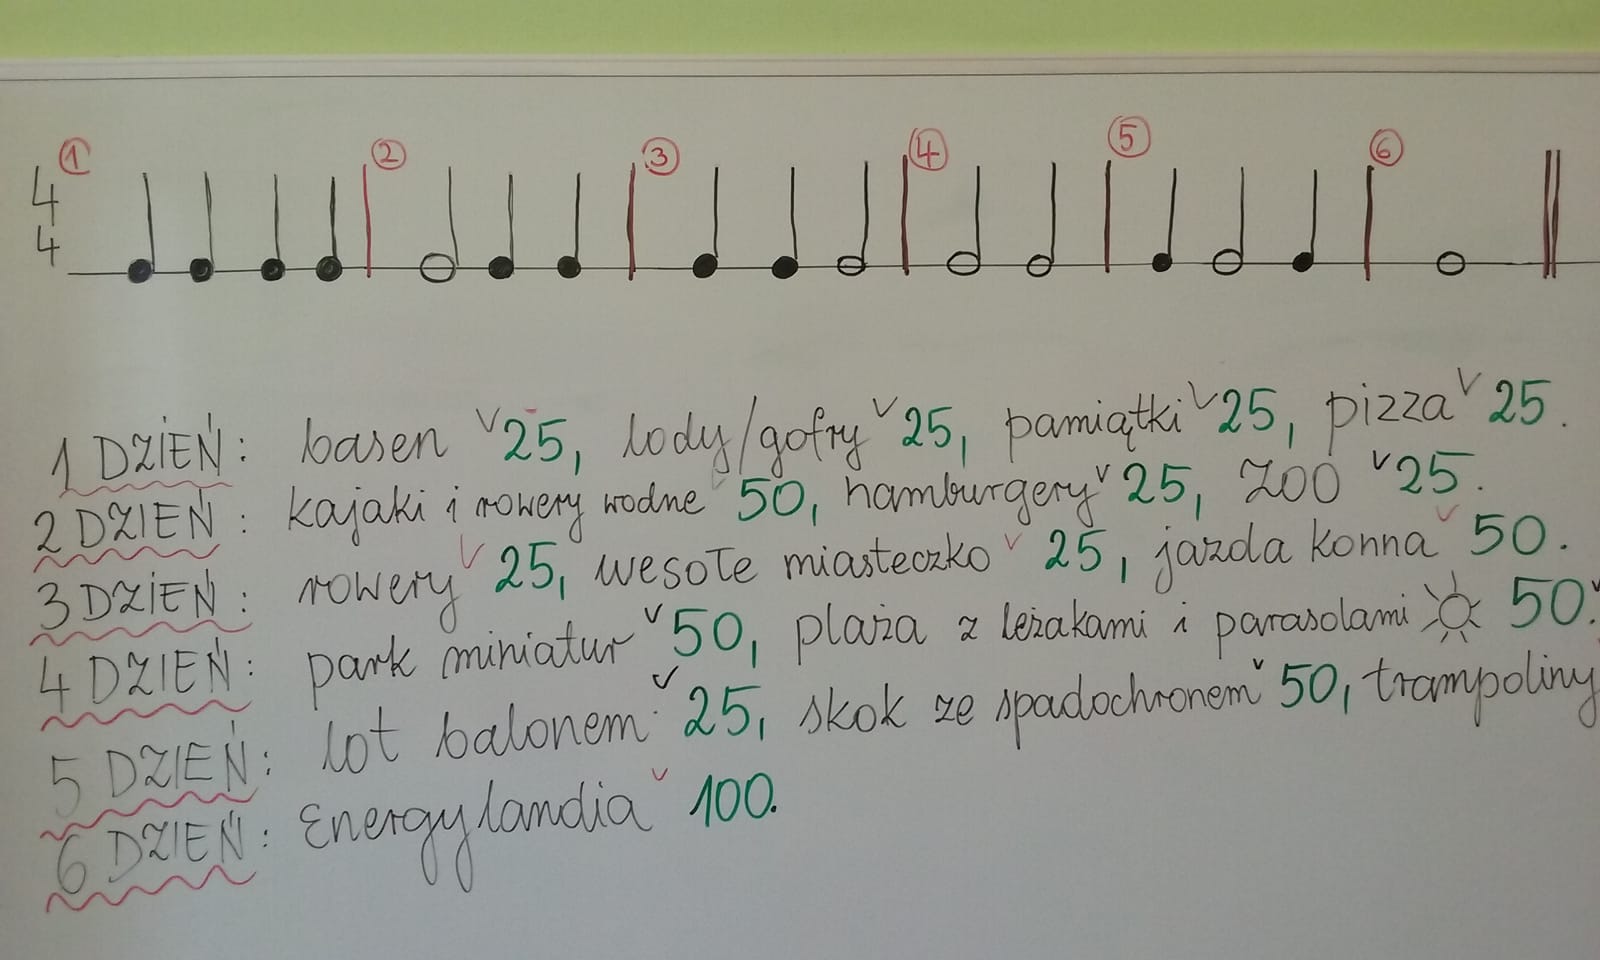 1 2 3 4 5 6
4
4
1 DZIEŃ: basen 25, lody/gofry 25, pamiątki 25, pizza 25.
2 DZIEŃ: kajaki i rowery wodne 50, hamburgery 25, ZOO 25.
3 DZIEŃ: rowery 25, wesołe miasteczko 25, jazda konna 50.
4 DZIEŃ: park miniatur 50, plaża z leżakami i parasolami 50.
5 DZIEŃ: lot balonem 25, skok ze spadochronem 50, trampoliny
6 DZIEŃ: Energylandia 100.